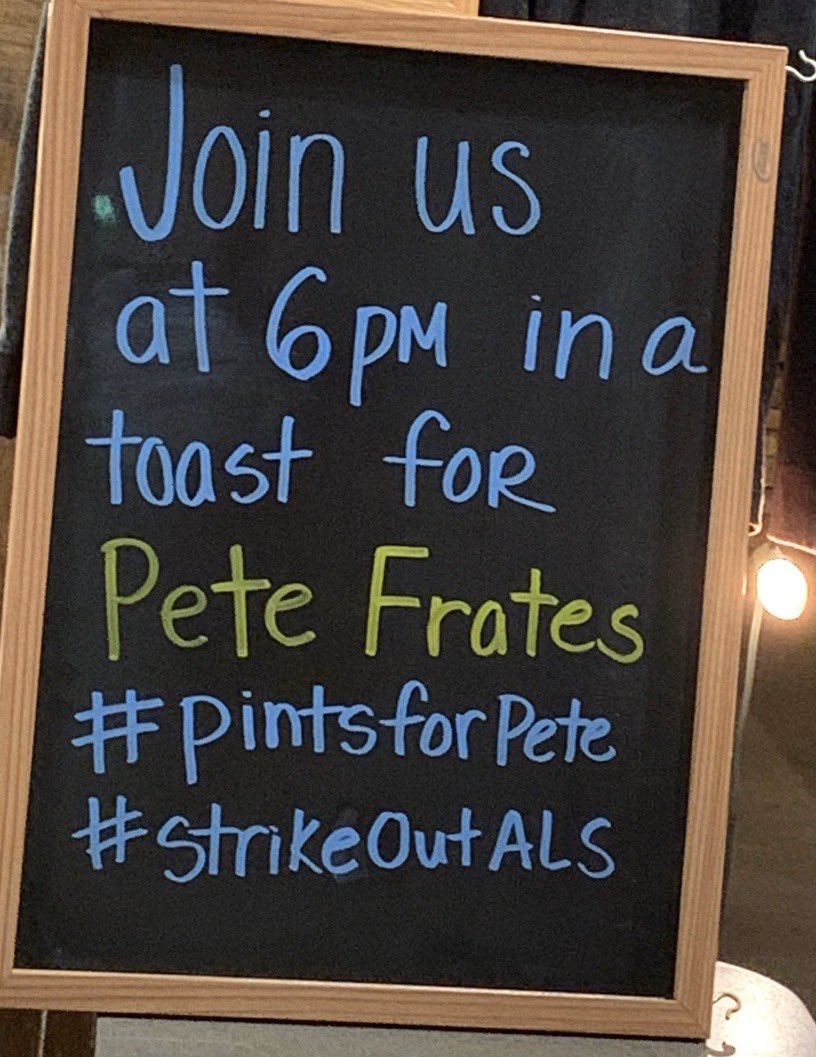 Join us
at 6pm in a
toast for
Pete Frates
#pintsforPete
#strikeOutALS